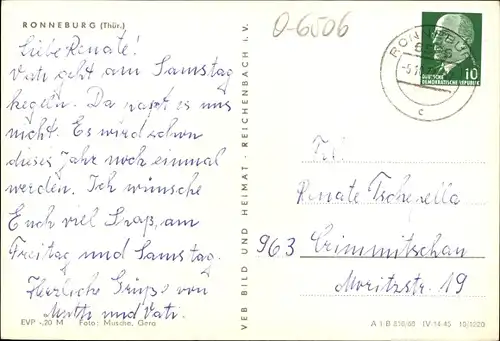 RONNEBURG (Thür.)
0-6506
Liebe Renate!
Vati geht am Samstag
kegeln. Da paßt es uns
nicht. Es wird schon
dieses Jahr noch einmal
werden. Ich wünsche
Euch viel Spaß, am
Freitag und Samstag.
Herzliche Grüße von
Mutti und Vati.
EVP -,20 M Foto: Musche, Gera
VEB BILD UND HEIMAT · REICHENBACH I. V.
RONNEBURG
c
10
DEUTSCHE
DEMOKRATISCHE REPUBLIK
Renate
963 Crimmitschau
Moritzstr. 19
A 1 B 810/68 IV-14-45 10/1220